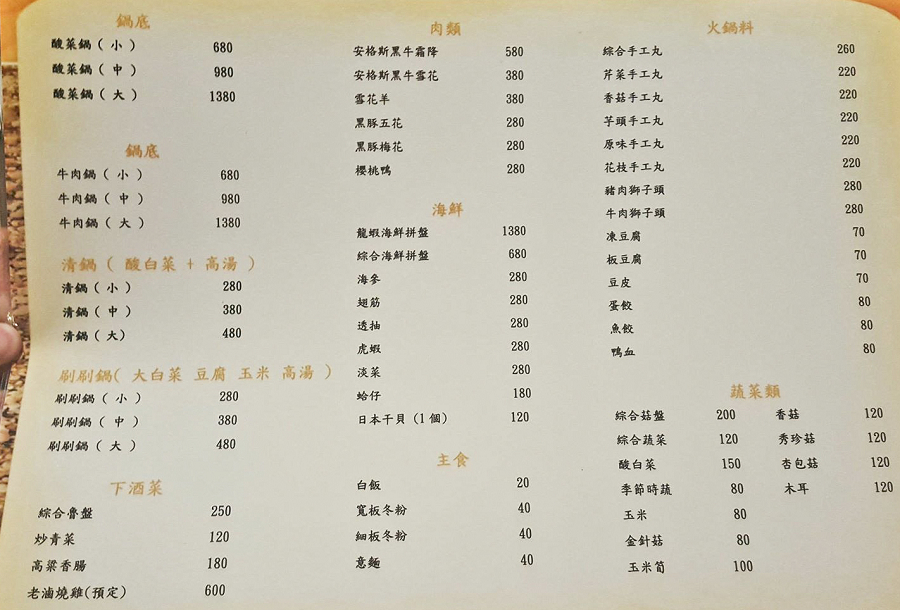 鍋底
酸菜鍋 ( 小 ) 680
酸菜鍋 ( 中 ) 980
酸菜鍋 ( 大 ) 1380
鍋底
牛肉鍋 ( 小 ) 680
牛肉鍋 ( 中 ) 980
牛肉鍋 ( 大 ) 1380
清鍋 ( 酸白菜 + 高湯 )
清鍋 ( 小 ) 280
清鍋 ( 中 ) 380
清鍋 ( 大) 480
刷刷鍋( 大白菜 豆腐 玉米 高湯 )
刷刷鍋 ( 小 ) 280
刷刷鍋 ( 中 ) 380
刷刷鍋 ( 大 ) 480
下酒菜
綜合魯盤 250
炒青菜 120
高粱香腸 180
老滷燒雞(預定) 600
肉類
安格斯黑牛霜降 580
安格斯黑牛雪花 380
雪花羊 380
黑豚五花 280
黑豚梅花 280
櫻桃鴨 280
海鮮
龍蝦海鮮拼盤 1380
綜合海鮮拼盤 680
海參 280
翅筋 280
透抽 280
虎蝦 280
淡菜 280
蛤仔 180
日本干貝 (1個) 120
主食
白飯 20
寬板冬粉 40
細板冬粉 40
意麵 40
火鍋料
綜合手工丸 260
芹菜手工丸 220
香菇手工丸 220
芋頭手工丸 220
原味手工丸 220
花枝手工丸 220
豬肉獅子頭 280
牛肉獅子頭 280
凍豆腐 70
板豆腐 70
豆皮 70
蛋餃 80
魚餃 80
鴨血 80
蔬菜類
綜合菇盤 200 香菇 120
綜合蔬菜 120 秀珍菇 120
酸白菜 150 杏包菇 120
季節時蔬 80 木耳 120
玉米 80
金針菇 80
玉米筍 100